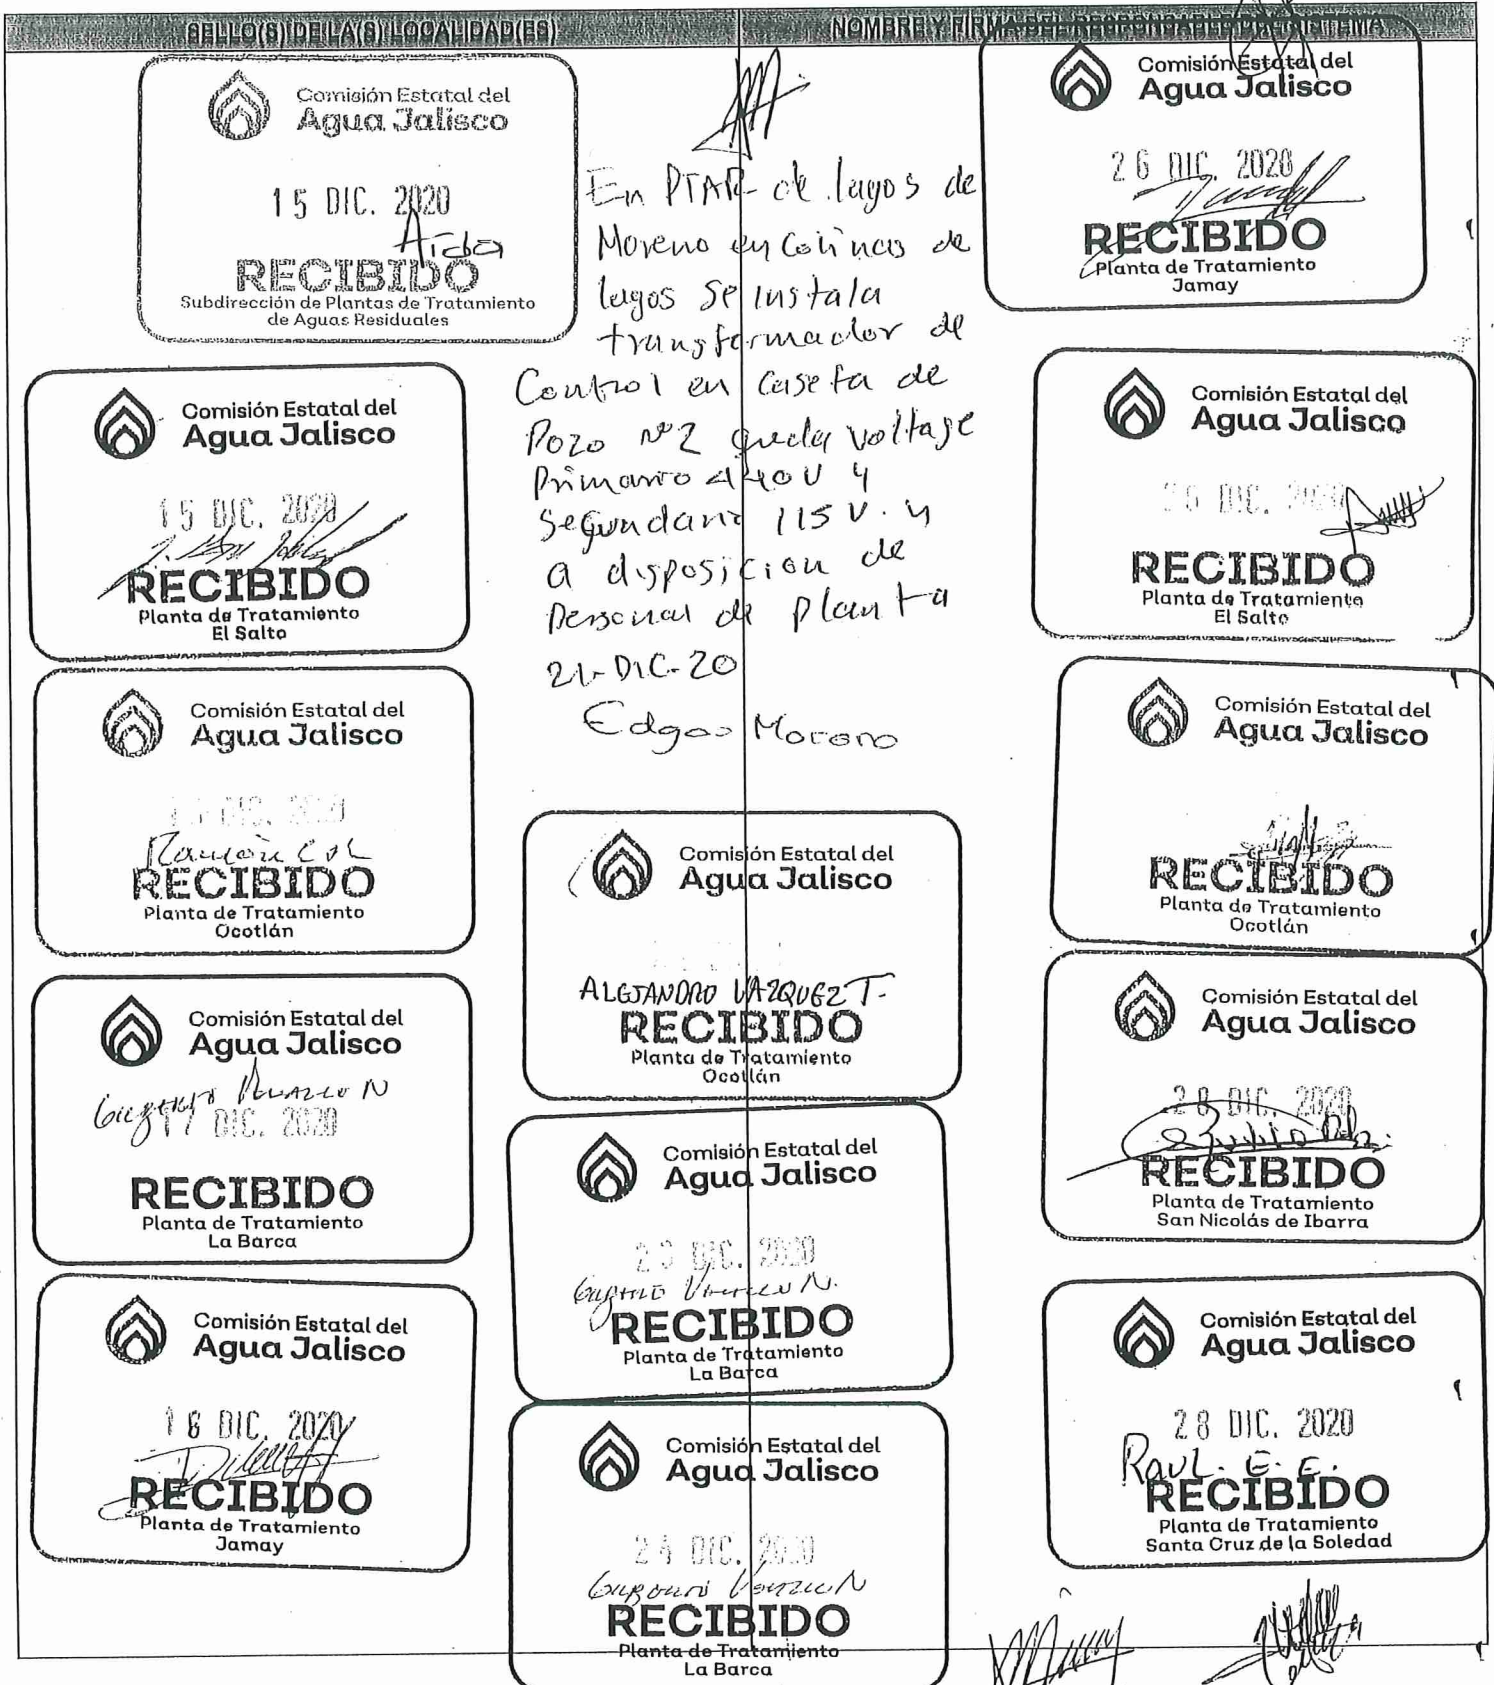 SELLO(S) DE LA(S) LOCALIDAD(ES)
NOMBRE Y FIRMA DEL RESPONSABLE DEL SISTEMA
Comisión Estatal del
Agua Jalisco
15 DIC. 2020
Aida
RECIBIDO
Subdirección de Plantas de Tratamiento
de Aguas Residuales
Comisión Estatal del
Agua Jalisco
15 DIC. 2020
RECIBIDO
Planta de Tratamiento
El Salto
Comisión Estatal del
Agua Jalisco
DIC. 2020
Ramón
RECIBIDO
Planta de Tratamiento
Ocotlán
Comisión Estatal del
Agua Jalisco
N
17 DIC. 2020
RECIBIDO
Planta de Tratamiento
La Barca
Comisión Estatal del
Agua Jalisco
18 DIC. 2020
RECIBIDO
Planta de Tratamiento
Jamay
En PTAR de lagos de
Moreno en Colinas de
lagos Se instala
transformador de
Control en Caseta de
Pozo Nº2 queda voltage
Primario 440V y
Segundario 115 V. y
a disposicion de
Personal de Planta
21-DIC-20
Edgar Moreno
Comisión Estatal del
Agua Jalisco
ALEJANDRO VAZQUEZ T.
RECIBIDO
Planta de Tratamiento
Ocotlán
Comisión Estatal del
Agua Jalisco
23 DIC. 2020
N.
RECIBIDO
Planta de Tratamiento
La Barca
Comisión Estatal del
Agua Jalisco
24 DIC. 2020
N
RECIBIDO
Planta de Tratamiento
La Barca
Comisión Estatal del
Agua Jalisco
26 DIC. 2020
RECIBIDO
Planta de Tratamiento
Jamay
Comisión Estatal del
Agua Jalisco
26 DIC. 2020
RECIBIDO
Planta de Tratamiento
El Salto
Comisión Estatal del
Agua Jalisco
RECIBIDO
Planta de Tratamiento
Ocotlán
Comisión Estatal del
Agua Jalisco
28 DIC. 2020
RECIBIDO
Planta de Tratamiento
San Nicolás de Ibarra
Comisión Estatal del
Agua Jalisco
28 DIC. 2020
RAUL. E. E.
RECIBIDO
Planta de Tratamiento
Santa Cruz de la Soledad